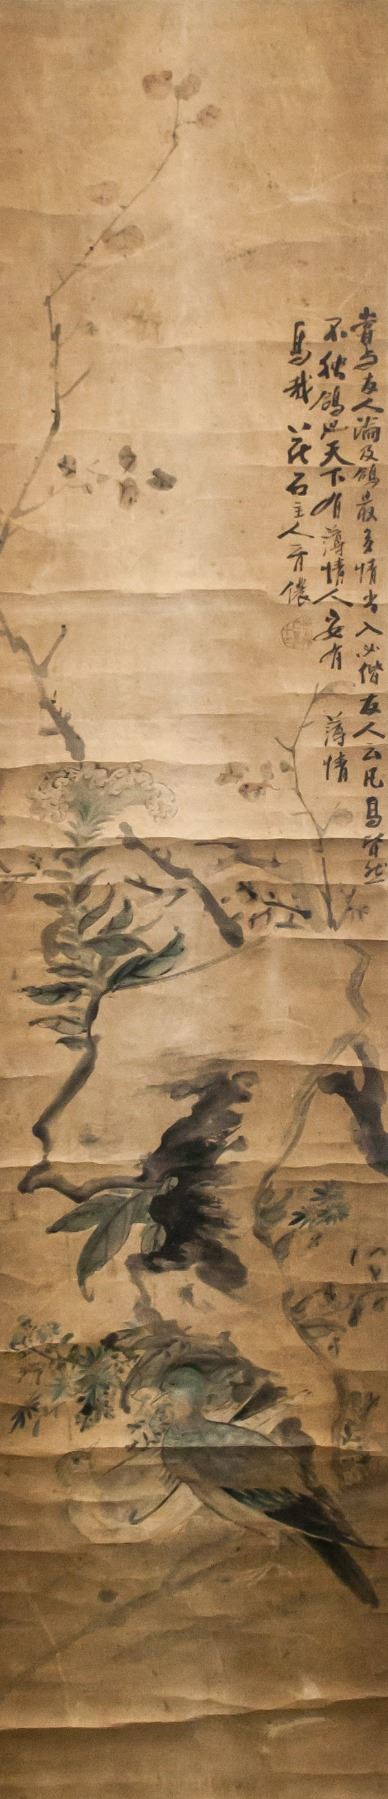 嘗与友人論及鴿最多情出入必偕友人云凡鳥皆然
不独鴿也天下有薄情人安有薄情
鳥哉 花石主人